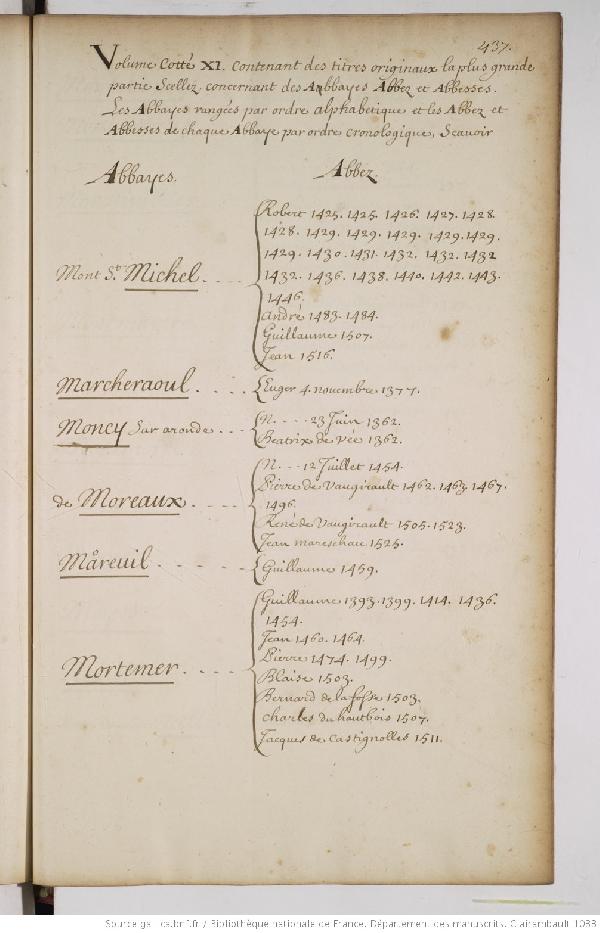 437.
Volume Cotté XI. Contenant des titres originaux la plus grande
partie Scellez, concernant des Abbayes Abbez et Abbesses.
Les Abbayes rangées par ordre alphabetique et les Abbez et
Abbesses de chaque Abbaye par ordre cronologique, Scavoir
Abbayes. Abbez.
Robert 1425. 1425. 1426. 1427. 1428.
1428. 1429. 1429. 1429. 1429. 1429.
1429. 1430. 1431. 1432. 1432. 1432
Mont St. Michel. . . . 1432. 1436. 1438. 1440. 1442. 1443.
1446.
André 1483. 1484.
Guillaume 1507.
Jean 1516.
Marcheraoul. . . . Euger 4. novembre 1377.
Moncy Sur aronde . . . N. . . . . 23 Juin 1362.
Beatrix de Vée 1362.
N. . . . 12 Juillet 1454.
Pierre de Vaugirault 1462. 1463. 1467.
de Moreaux. . . . 1496.
René de Vaugirault 1505. 1523.
Jean mareschau 1525.
Måreuil. . . . . . Guillaume 1459.
Guillaume 1393. 1399. 1414. 1436.
1454.
Jean 1460. 1464.
Pierre 1474. 1499.
Mortemer. . . . Blaise 1503.
Bernard de la fosse 1503.
Charles du hautbois 1507.
Jacques de Castignolles 1511.
Source gallica.bnf.fr / Bibliothèque nationale de France. Département des manuscrits. Clairambault 1083